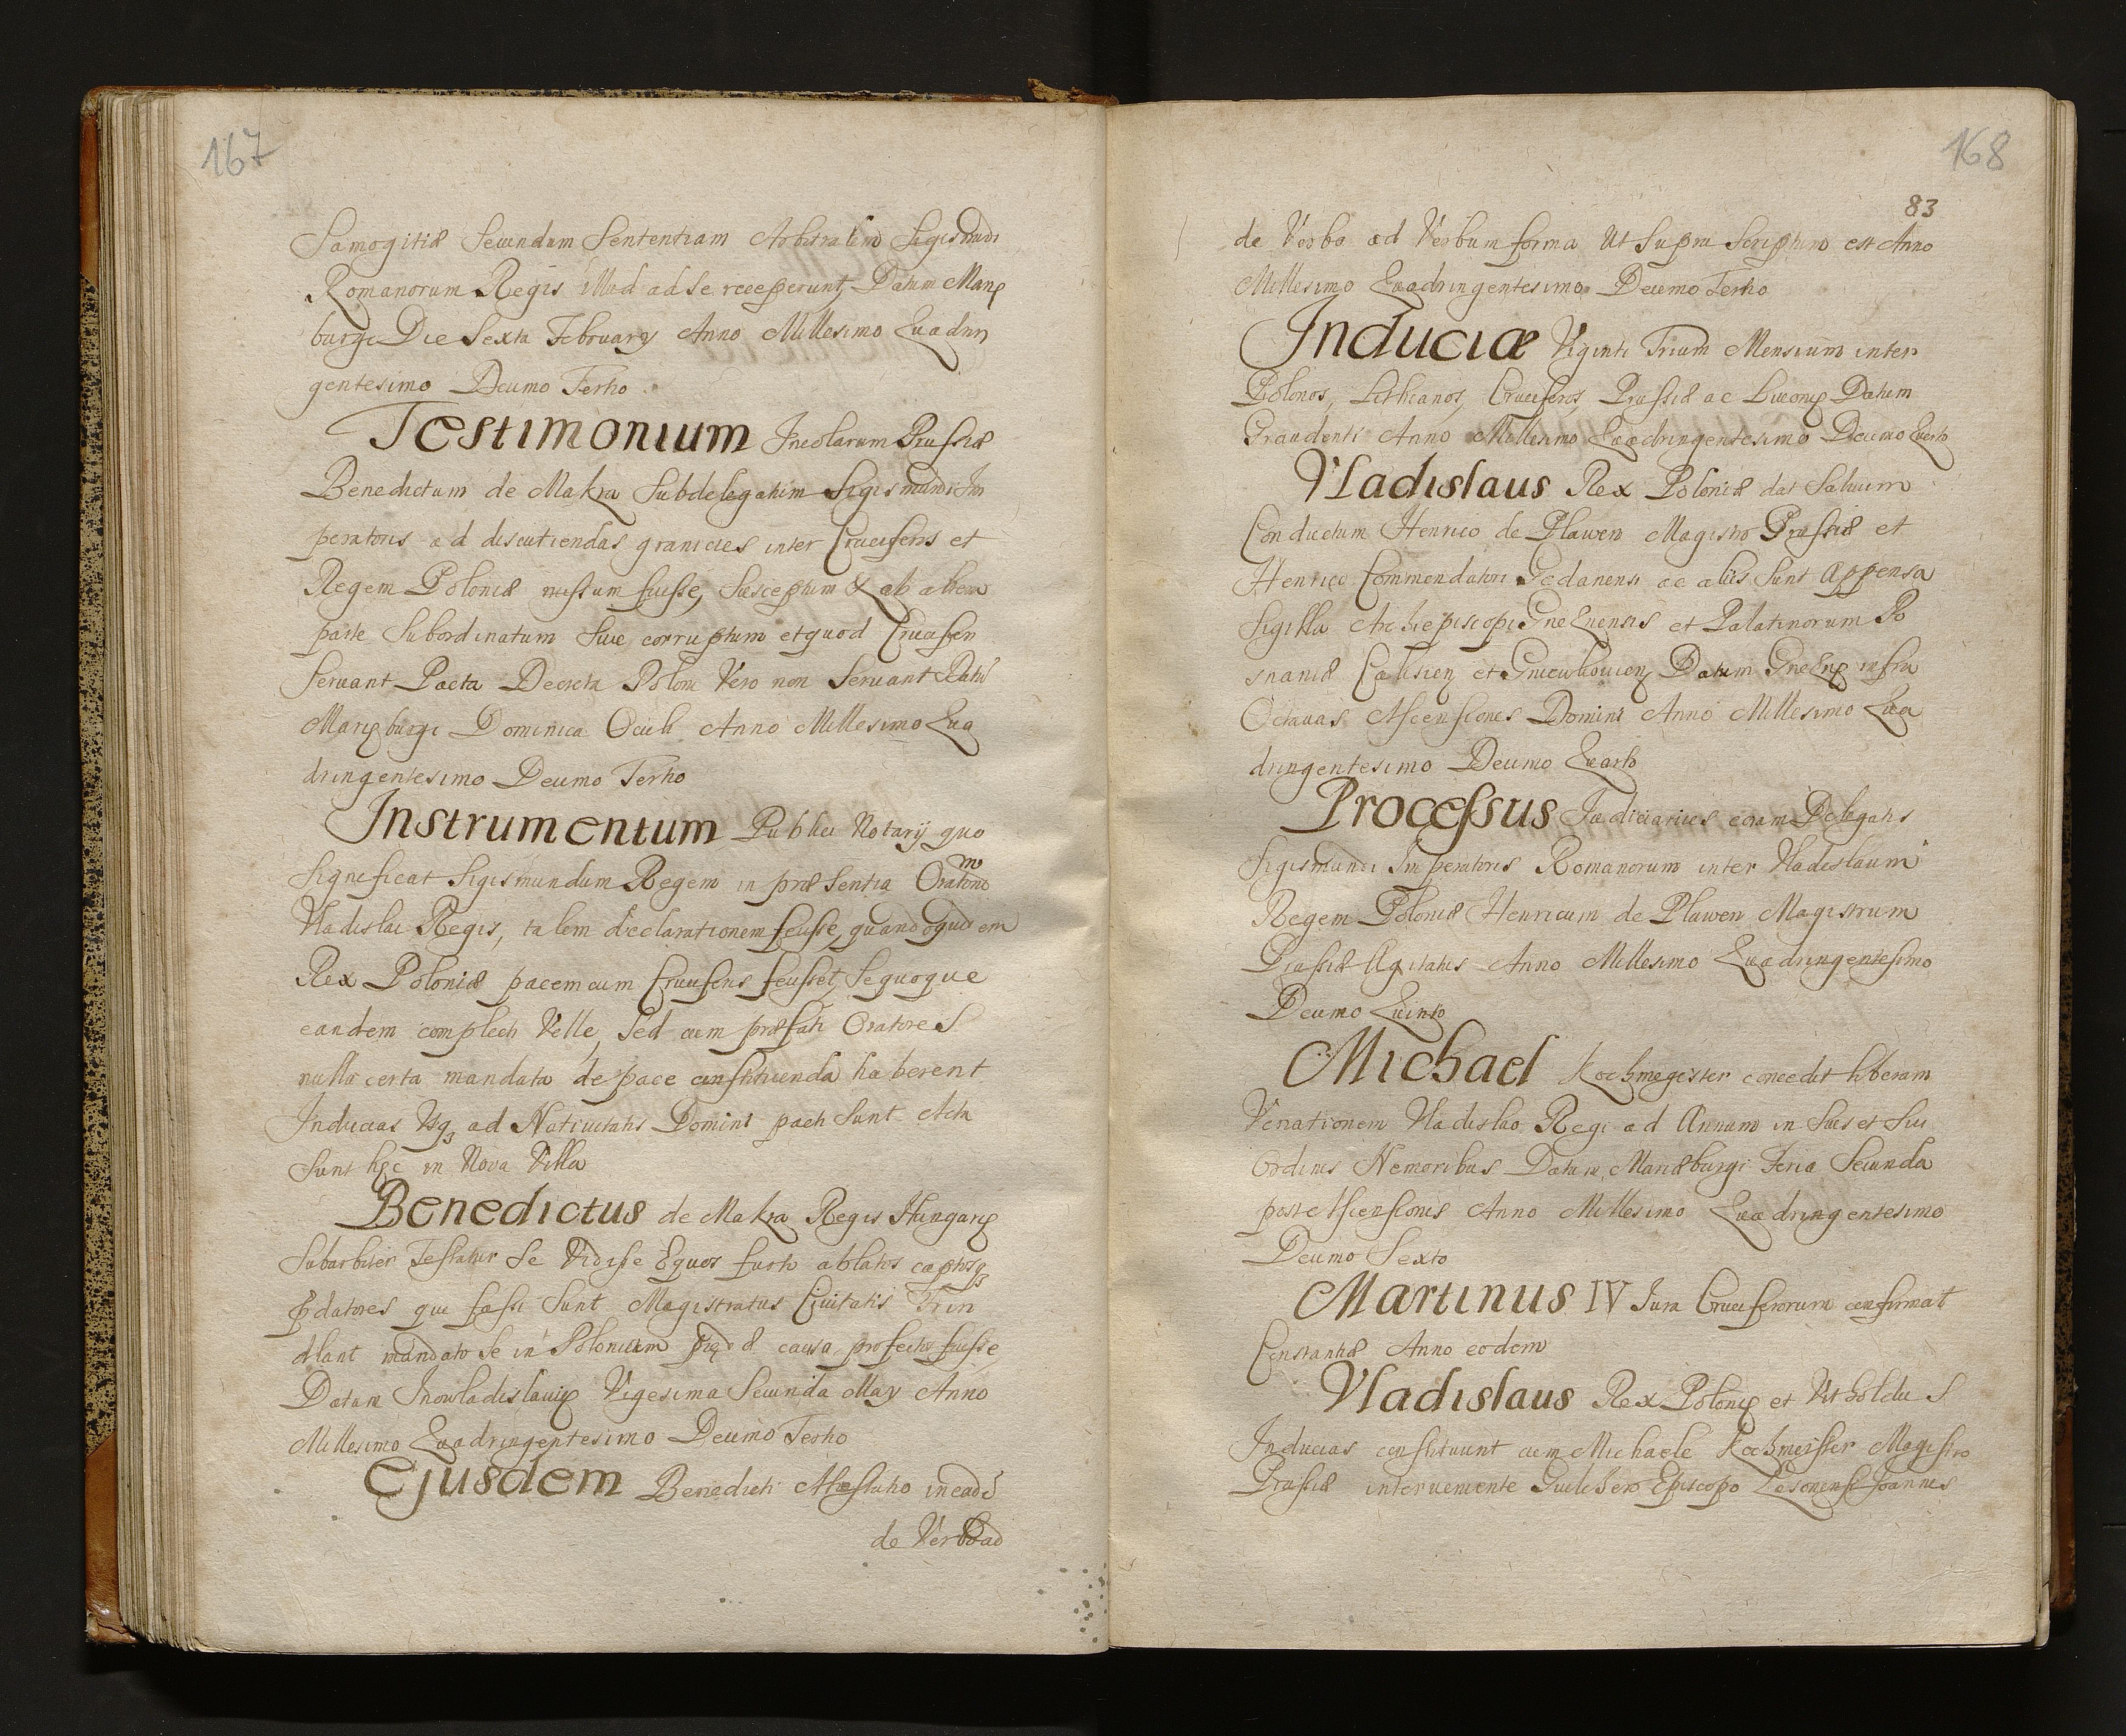 167
Samogitiæ Secundum Sententiam Arbitralem Sigismundi
Romanorum Regis illud ad se receperunt, Datum Marię
burgi Die Sexta February Anno Millesimo Quadrin
gentesimo Decimo Tertio
Testimonium Incolarum Prussiæ
Benedictum de Makra Subdelegatum Sigismundi Im
peratoris ad discutiendas granicies inter Cruciferos et
Regem Poloniæ missum fuisse, Susceptum & ab altera
parte Subordinatum Sive corruptum et quod Cruciferi
servant Pacta Decreta Poloni Vero non Servant Datū
Marięburgi Dominica Oculi Anno Millesimo Qua
dringentesimo Decimo Tertio
Instrumentum Publici Notarij quo
Significat Sigismundum Regem in præsentia Oratorum
Vladislai Regis, talem declarationem fecisse, quandoquidem
Rex Poloniæ pacem cum Cruciferis fecisset, Se quoque
eandem complecti Velle, Sed cum præfati Oratores
nulla certa mandata de pace constituenda haberent
Inducias Usq3 ad Nativitatis Domini pacti Sunt Acta
Sunt hęc in Nova Villa
Benedictus de Makra Regis Hungarię
Subarbiter Testatur Se Vidisse Equos furto ablatos captosq3
pdatores qui fassi Sunt Magistratus Civitatis
mandato se in Poloniam prędæ causa profectos fuisse,
Datam Inowladislavię Vigesima Secunda May Anno
Millesimo Quadringentesimo Decimo Tertio
Ejusdem Benedicti Attestatio in eadē
de Verbo ad
168
83
de Verbo ad Verbum forma Ut Supra Scriptum est Anno
Millesimo Quadringentesimo Decimo Tertio
Induciæ Viginti Trium Mensium inter
Polonos, Lithuanos, Cruciferos, Prussiæ ac Livonię Datum
Graudenti Anno Millesimo Quadringentesimo Decimo Quarto
Vladislaus Rex Poloniæ dat Salvum
Conductum Henrico de Plawen Magistro Prussiæ et
Henrico Commendatori Gedanensi ac aliis Sunt Appensa
Sigilla Archiepiscopi Gneznensis et Palatinorum Po
snaniæ Calisien et Gniewkovien Datum Gneznę infra
Octavas Ascensiones Domini Anno Millesimo Qua
dringentesimo Decimo Quarto
Processus Judiciarius coram Delegatis
Sigismundi Imperatoris Romanorum inter Vladislaum
Regem Poloniæ Henricum de Plawen Magistrum
Prussiæ Agitatus Anno Millesimo Quadringentesimo
Decimo Quinto
Michael Kochmegister concedit liberam
Venationem Vladislao Regi ad Annum in Suis et Sui
Ordinis Nemoribus Datum Mariæburgi Feria Secunda
post Ascensiones Anno Millesimo Quadringentesimo
Decimo Sexto
Martinus IV Jura Cruciferorum confirmat
Constantiæ Anno eodem
Vladislaus Rex Polonię et Vitholdus
Inducias constituunt cum Michaele Kochmeister Magistro
Prussiæ interveniente Episcopo Joannes